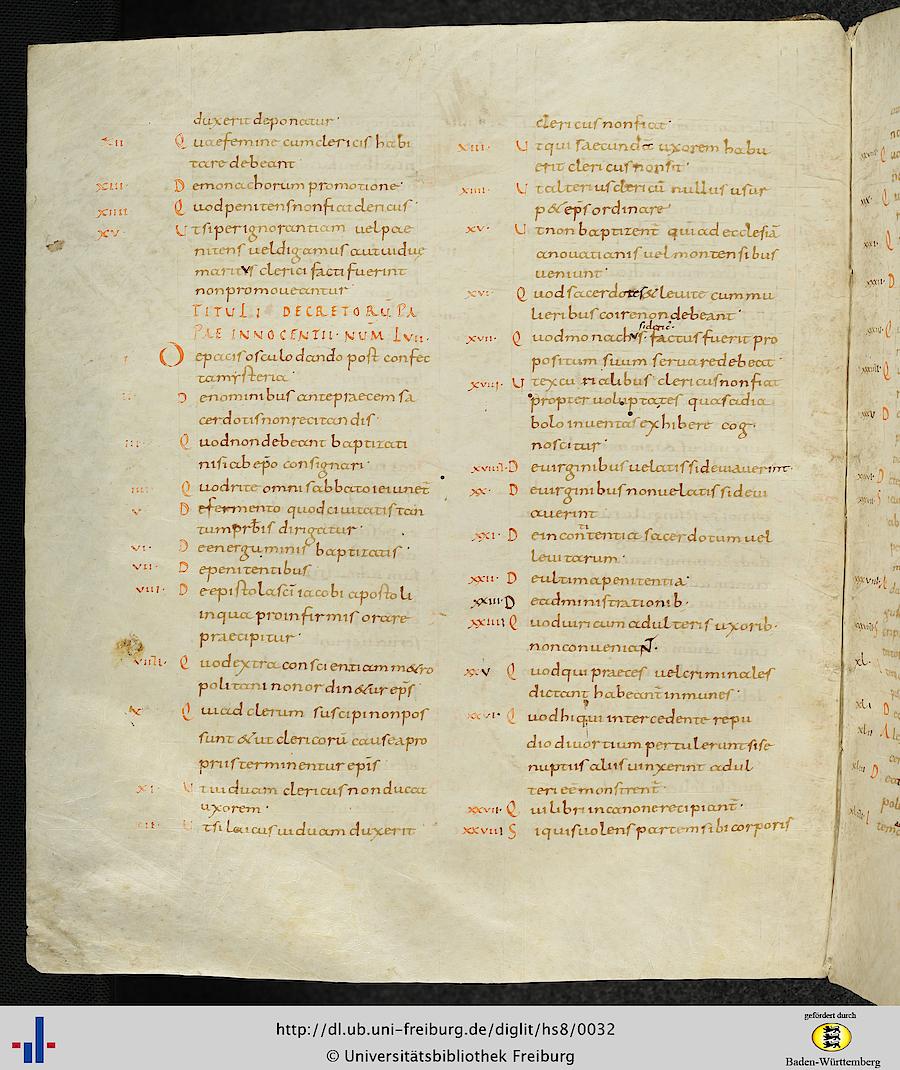 duxerit deponatur·
XII· Quae femine cum clericis habi
tare debeant·
XIII· De monachorum promotione·
XIIII Quod penitens non fiat clericus·
XV· Ut si per ignorantiam vel pae
nitens vel digamus aut vidue
maritus clerici facti fuerint
non promoveantur·
TITULI DECRETORŪ PA
PAE INNOCENTII· NUM̄ LVII·
I De pacis osculo dando post confec
ta mysteria·
II· De nominibus ante praecem sa
cerdotis non recitandis·
III· Quod non debeant baptizati
nisi ab ep̄o consignari·
IIII· Quod rite omni sabbato ieiunet̄
V· De fermento quod civitatis tan
tum p̱rb̄is dirigatur·
VI· De energuminis baptizatis·
VII· De penitentibus
VIII· De epistola sc̄i iacobi apostoli
in qua pro infirmis orare
praecipitur·
VIIII· Quod extra conscientiam m&ro
politani non ordin&ur ep̄s
X· Qui ad clerum suscipi non pos
sunt &ut clericorū causae a pro
priis terminentur ep̄is·
XI· Ut viduam clericus non ducat
uxorem·
XII· Ut si laicus viduam duxerit
clericus non fiat·
XIII· Ut qui saecundā uxorem habu
erit clericus non sit·
XIIII· Ut alterius clericū nullus usur
p& ep̄s ordinare·
XV· Ut non baptizent̄ qui ad ecclesiā
a novatianis vel montensibus
veniunt·
XVI· Quod sacerdotes & levite cum mu
lieribus coire non debeant·
XVII· Quod monachus si cleric· factus fuerit pro
positum suum servare debeat·
XVIII· Ut ex curialibus clericus non fiat
propter voluptates quas a dia
bolo inventas exhibere cog
noscitur·
XVIIII· De virginibus velatis si deviaverint·
XX· De virginibus non velatis si devi
averint
XXI· De incontinentia sacerdotum vel
levitarum·
XXII· De ultima penitentia·
XXIII· De administrationib·
XXIIII Quod viri cum adulteris uxorib·
non conveniant·
XXV Quod qui praeces vel criminales
dictant habeant̄ inmunes·
XXVI· Quod hi qui intercedente repu
dio divortium pertulerunt si se
nuptiis aliis vinxerint adul
teri eē monstrent̄·
XXVII· Qui libri in canone recipiant̄·
XXVIII Si quis volens partem sibi corporis
http://dl.ub.uni-freiburg.de/diglit/hs8/0032
© Universitätsbibliothek Freiburg
gefördert durch
Baden-Württemberg